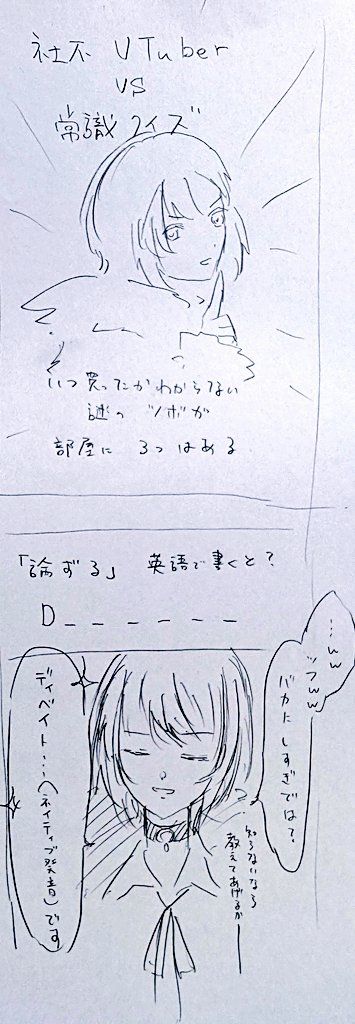 社不 VTuber
VS
常識クイズ
いつ買ったかわからない
謎のツボが
部屋に 3つはある
「論ずる」 英語で書くと?
D______
…ww
ッフww
バカにしすぎでは?
知らないなら
教えてあげるかー
ディベイト…(ネイティブ発音)です